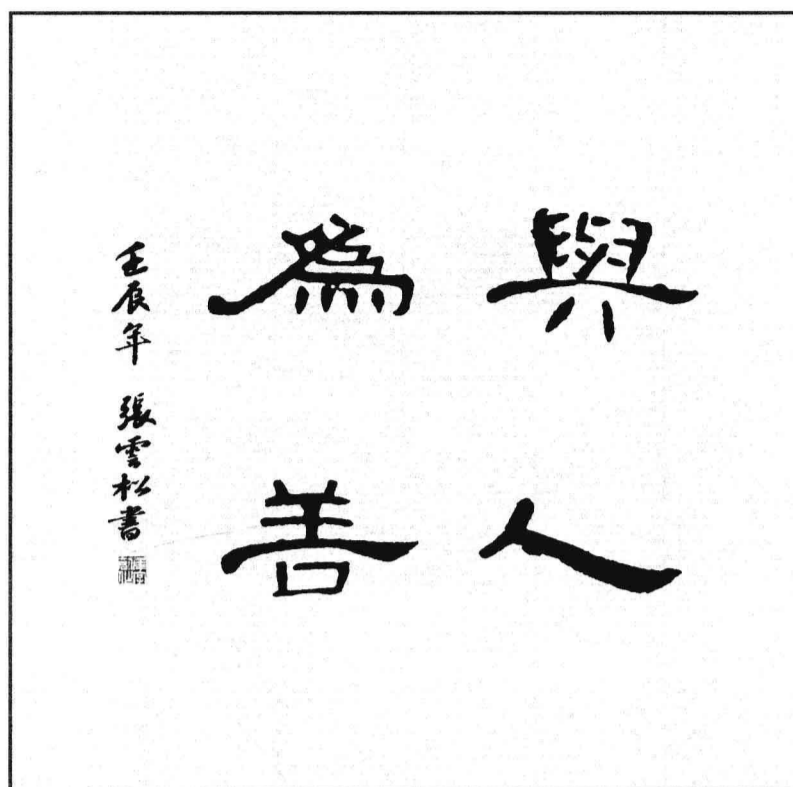 與人
為善
壬辰年 張雲松書